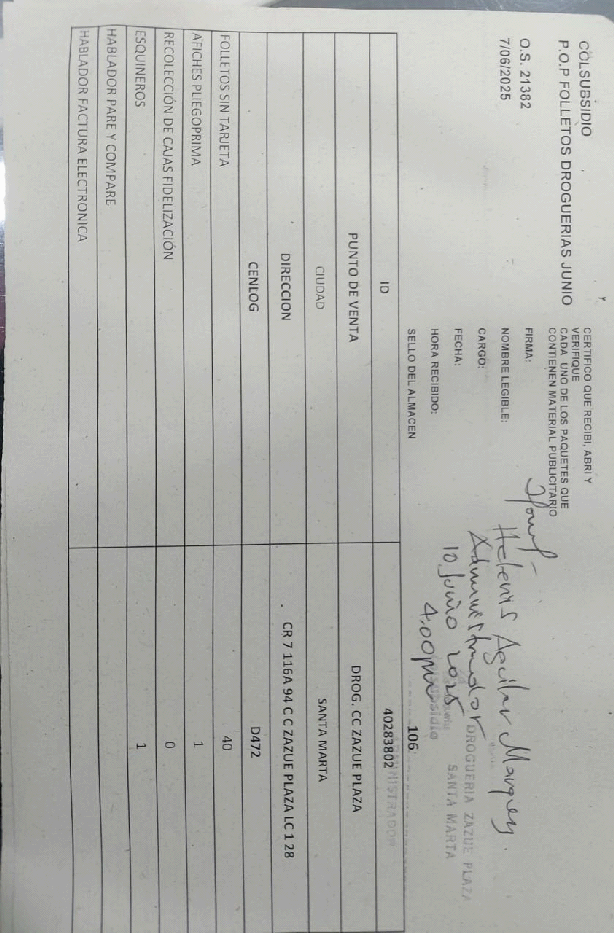 COLSUBSIDIO
P.O.P FOLLETOS DROGUERIAS JUNIO
O.S. 21382
7/06/2025
CERTIFICO QUE RECIBI, ABRI Y
VERIFIQUE
CADA UNO DE LOS PAQUETES QUE
CONTIENEN MATERIAL PUBLICITARIO
FIRMA:
NOMBRE LEGIBLE: Aguilar Marquez
CARGO: Administrador
FECHA: 10 Junio 2025
HORA RECIBIDO: 4:00pm
SELLO DEL ALMACEN 106
DROGUERIA ZAZUE PLAZA
SANTA MARTA
ADMINISTRADOR
ID 40283802
PUNTO DE VENTA DROG. CC ZAZUE PLAZA
CIUDAD SANTA MARTA
DIRECCION CR 7 116A 94 C C ZAZUE PLAZA LC 1 28
CENLOG D472
FOLLETOS SIN TARJETA 40
AFICHES PLIEGOPRIMA 1
RECOLECCIÓN DE CAJAS FIDELIZACIÓN 0
ESQUINEROS 1
HABLADOR PARE Y COMPARE
HABLADOR FACTURA ELECTRONICA